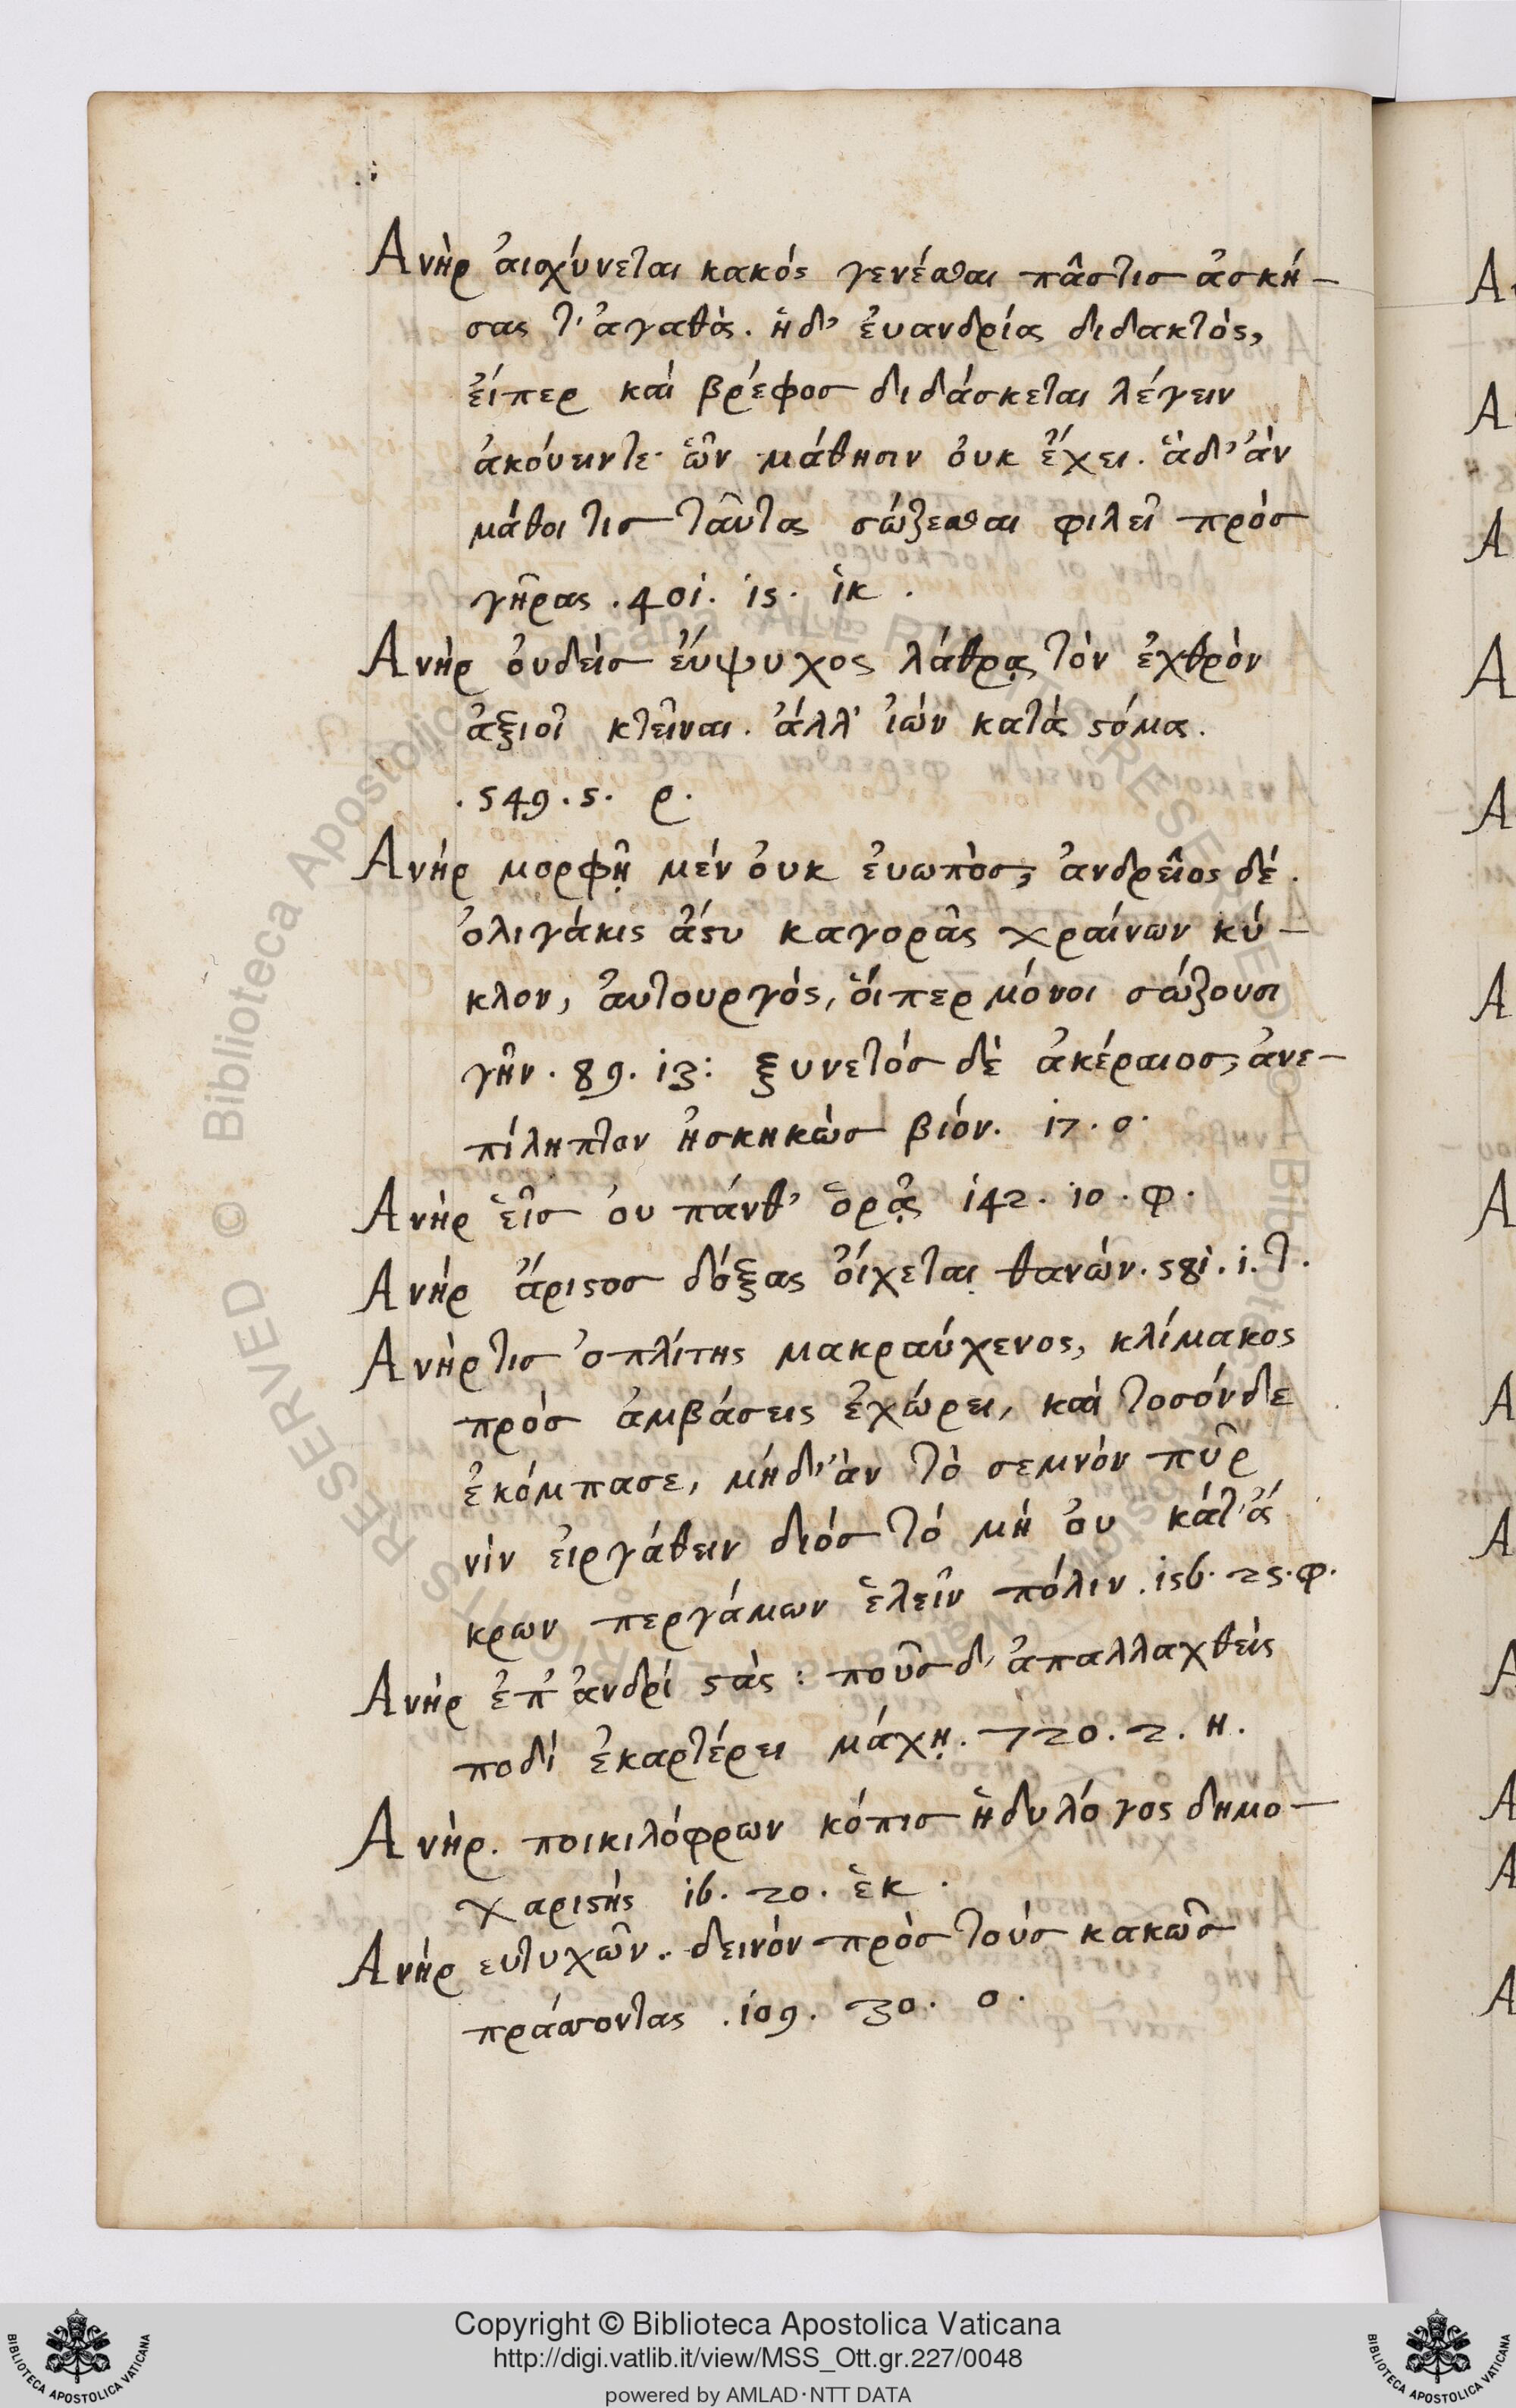 Ἀνὴρ ἀισχύνεται κακός γενέσθαι πᾶστις ἀσκή-
σας τ' ἀγαθὰς. ἡδ' ἐυανδρίας διδακτὸς,
ἐίπερ καὶ βρέφος διδάσκεται λέγειν
ἀκόυειντε ὧν μάθησιν ὀυκ ἔχει. ἁδ' ἀν
μάθοι τις ταῦτας σώζεσθαι φιλεῖ πρός
γῆρας . 401. 15. ἱκ .
Ἀνήρ ὀυδείς ἐύψυχος λάθρᾳ τὸν ἐχθρὸν
ἀξιοῖ κτεῖναι. ἀλλ' ἰών κατὰ στόμα.
. 549. 5. ρ.
Ἀνήρ μορφῇ μέν ὀυκ ἐυωπὸς, ἀνδρεῖος δέ.
ὀλιγάκις ἄστυ καγορᾶς χραίνων κύ-
κλον, ἀυτουργός, ὅιπερ μόνοι σώζουσι
γῆν. 89. 13: ξυνετός δὲ ἀκέραιος, ἀνε-
πίληπτον ἠσκηκὼς βίον. 17. ο.
Ἀνὴρ εἷς ὀυ πάνθ' ὁρᾷς 142. 10. φ.
Ἀνήρ ἄριστος δόξας ὄιχεται θανών. 581. 1. τ.
Ἀνὴρ τις ὀπλίτης μακραύχενος, κλίμακος
πρὸς ἀμβάσεις ἐχώρει, καὶ τοσόνδε
ἐκόμπασε, μήδ' ἀν τὸ σεμνὸν πῦρ
νὶν ἐιργάθειν διός τό μή ὀυ κάτ' ἄ
κρων περγάμων ἑλεῖν πόλιν. 156. 25. φ.
Ἀνήρ ἐπ' ἀνδρί στὰς : ποῦς δ' ἀπαλλαχθείς
ποδί ἐκαρτέρει μάχῃ. 720. 2. η.
Ἀνὴρ. ποικιλόφρων κόπις ἡδυλόγος δημο-
χαριστής 16. 20. ἑκ .
Ἀνήρ ευτυχῶν. δεινὸν πρὸς τούς κακῶς
πράσσοντας . 109. 30. ο.
Copyright © Biblioteca Apostolica Vaticana
http://digi.vatlib.it/view/MSS_Ott.gr.227/0048
powered by AMLAD·NTT DATA